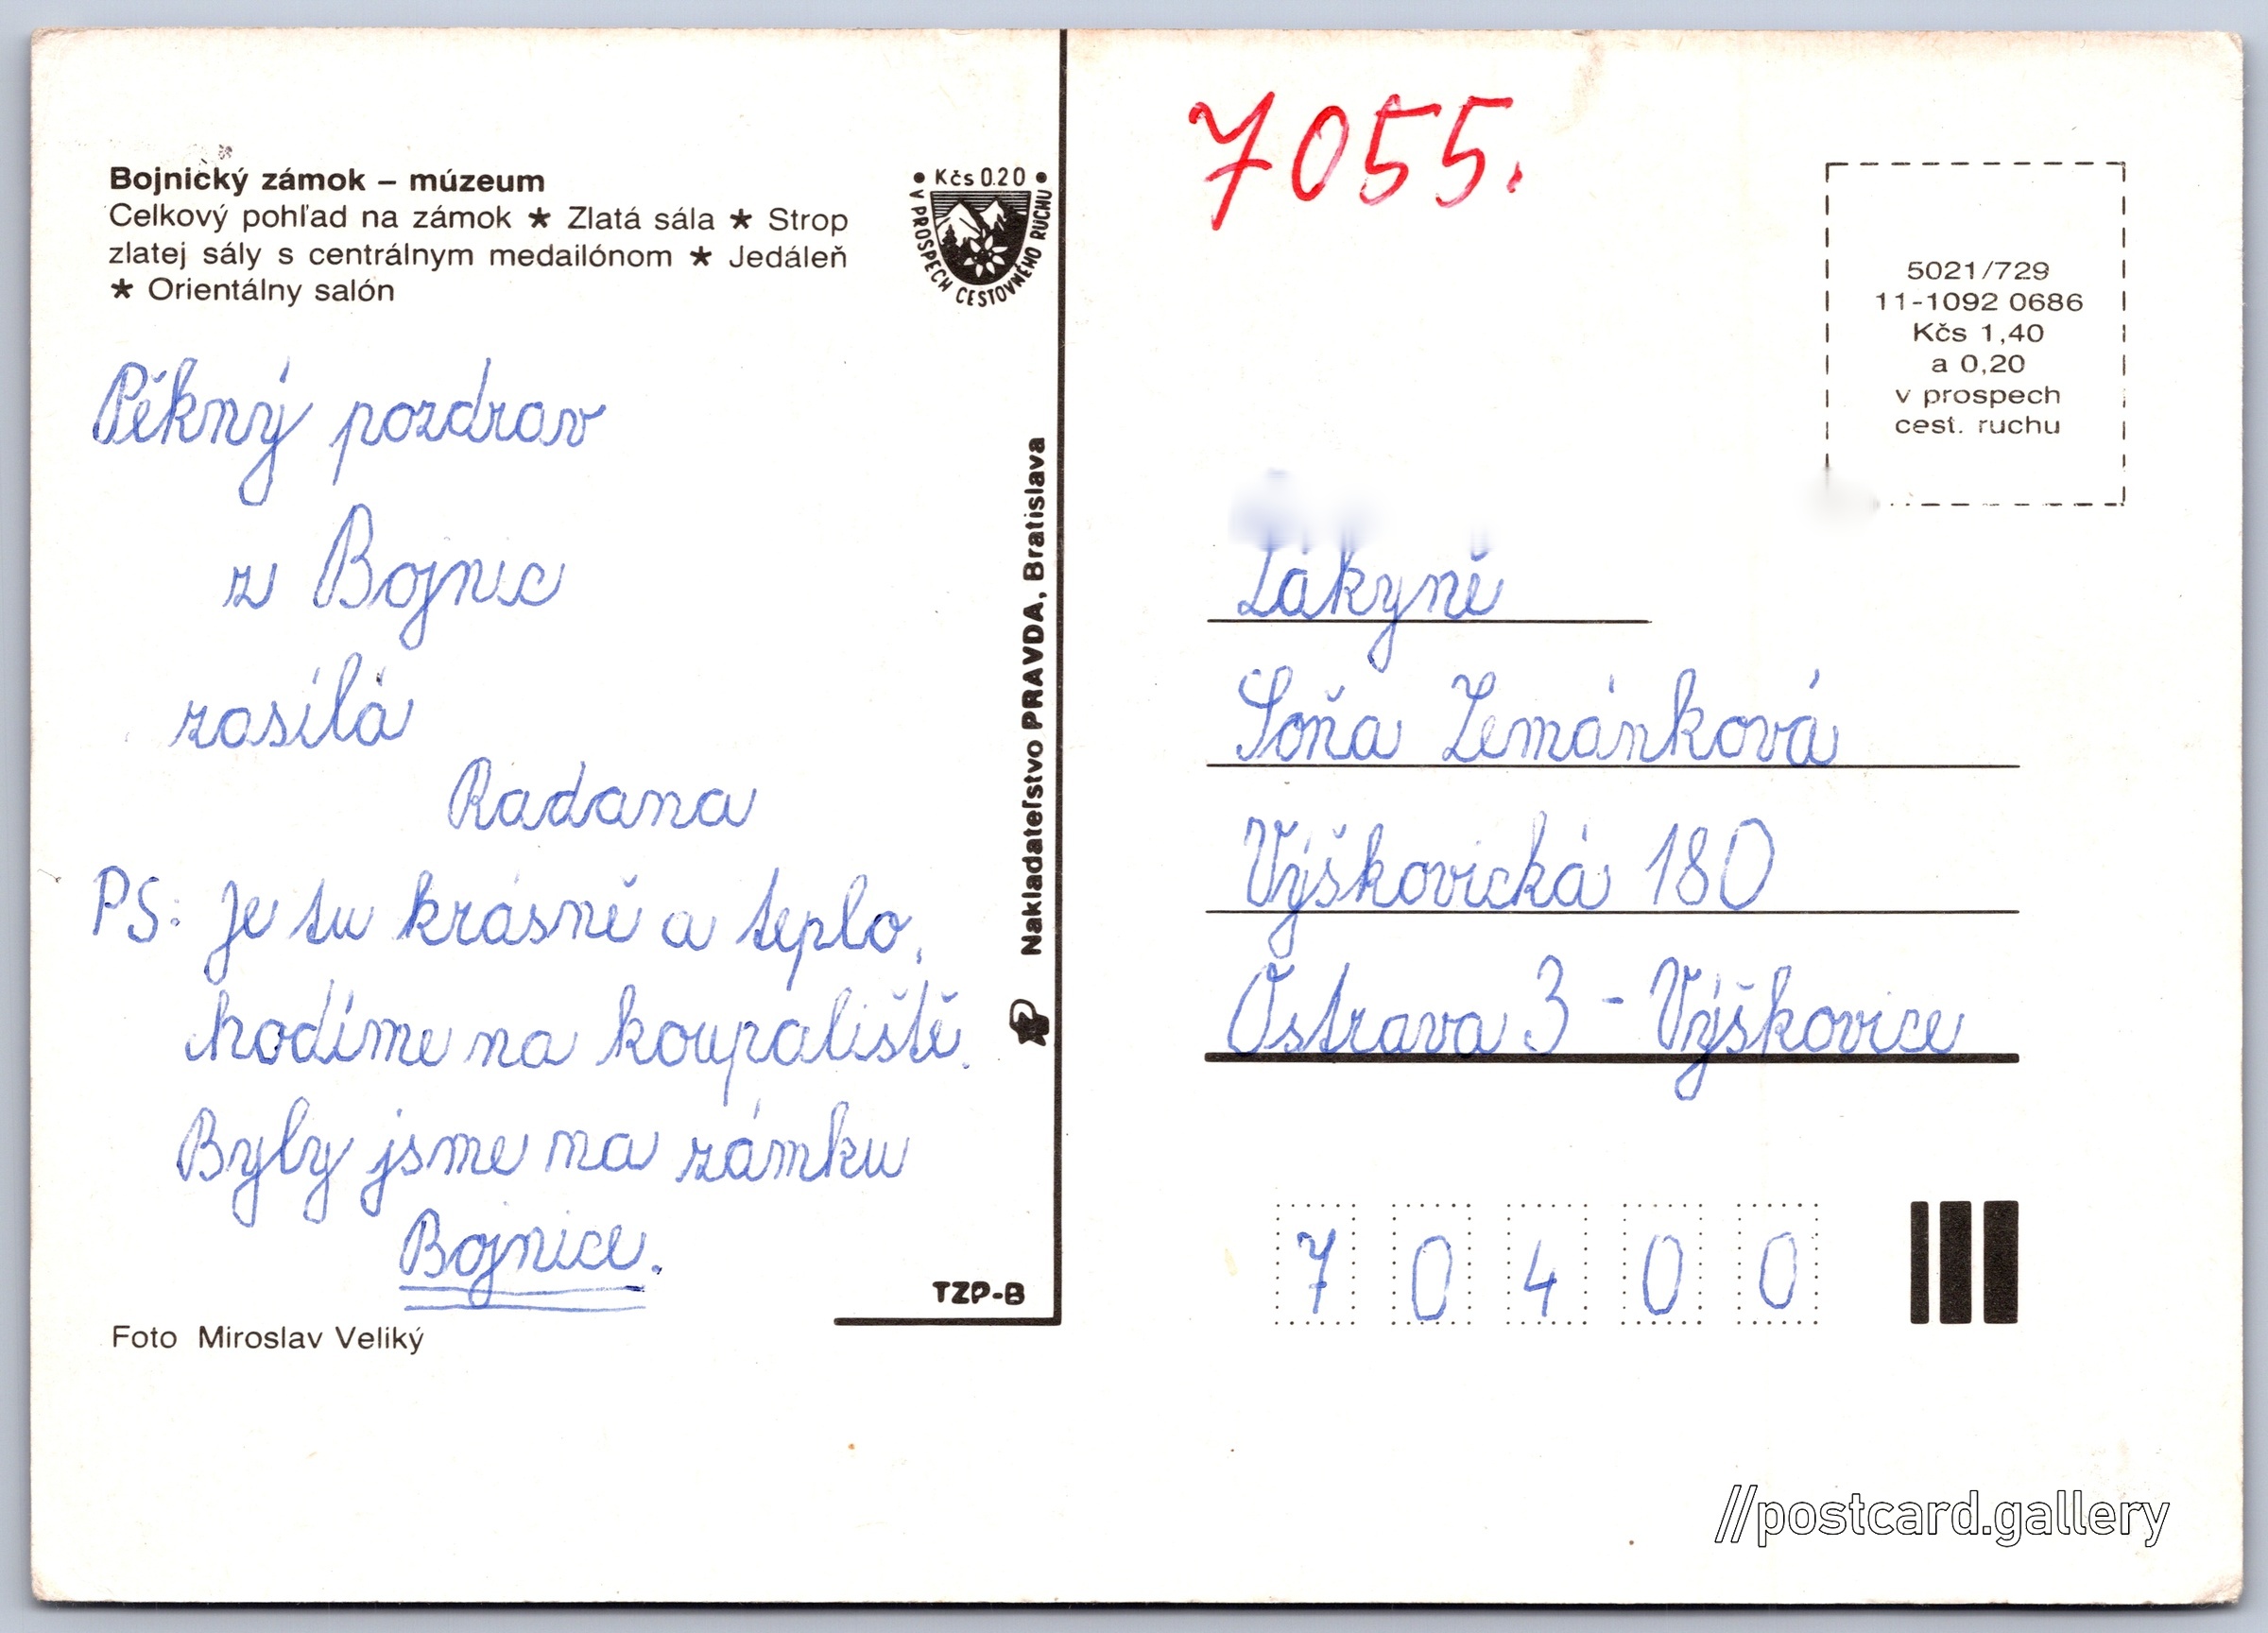 Bojnický zámok – múzeum
Celkový pohľad na zámok ★ Zlatá sála ★ Strop
zlatej sály s centrálnym medailónom ★ Jedáleň
★ Orientálny salón
• Kčs 0.20 •
V PROSPECH CESTOVNÉHO RUCHU
Pěkný pozdrav
z Bojnic
zasílá
Radana
PS: Je tu krásně a teplo,
chodíme na koupaliště.
Byly jsme na zámku
Bojnice.
Foto Miroslav Veliký
Nakladateľstvo PRAVDA, Bratislava
TZP-B
7055.
5021/729
11-1092 0686
Kčs 1,40
a 0,20
v prospech
cest. ruchu
Žákyně
Soňa Zemánková
Výškovická 180
Ostrava 3 - Výškovice
7 0 4 0 0
//postcard.gallery